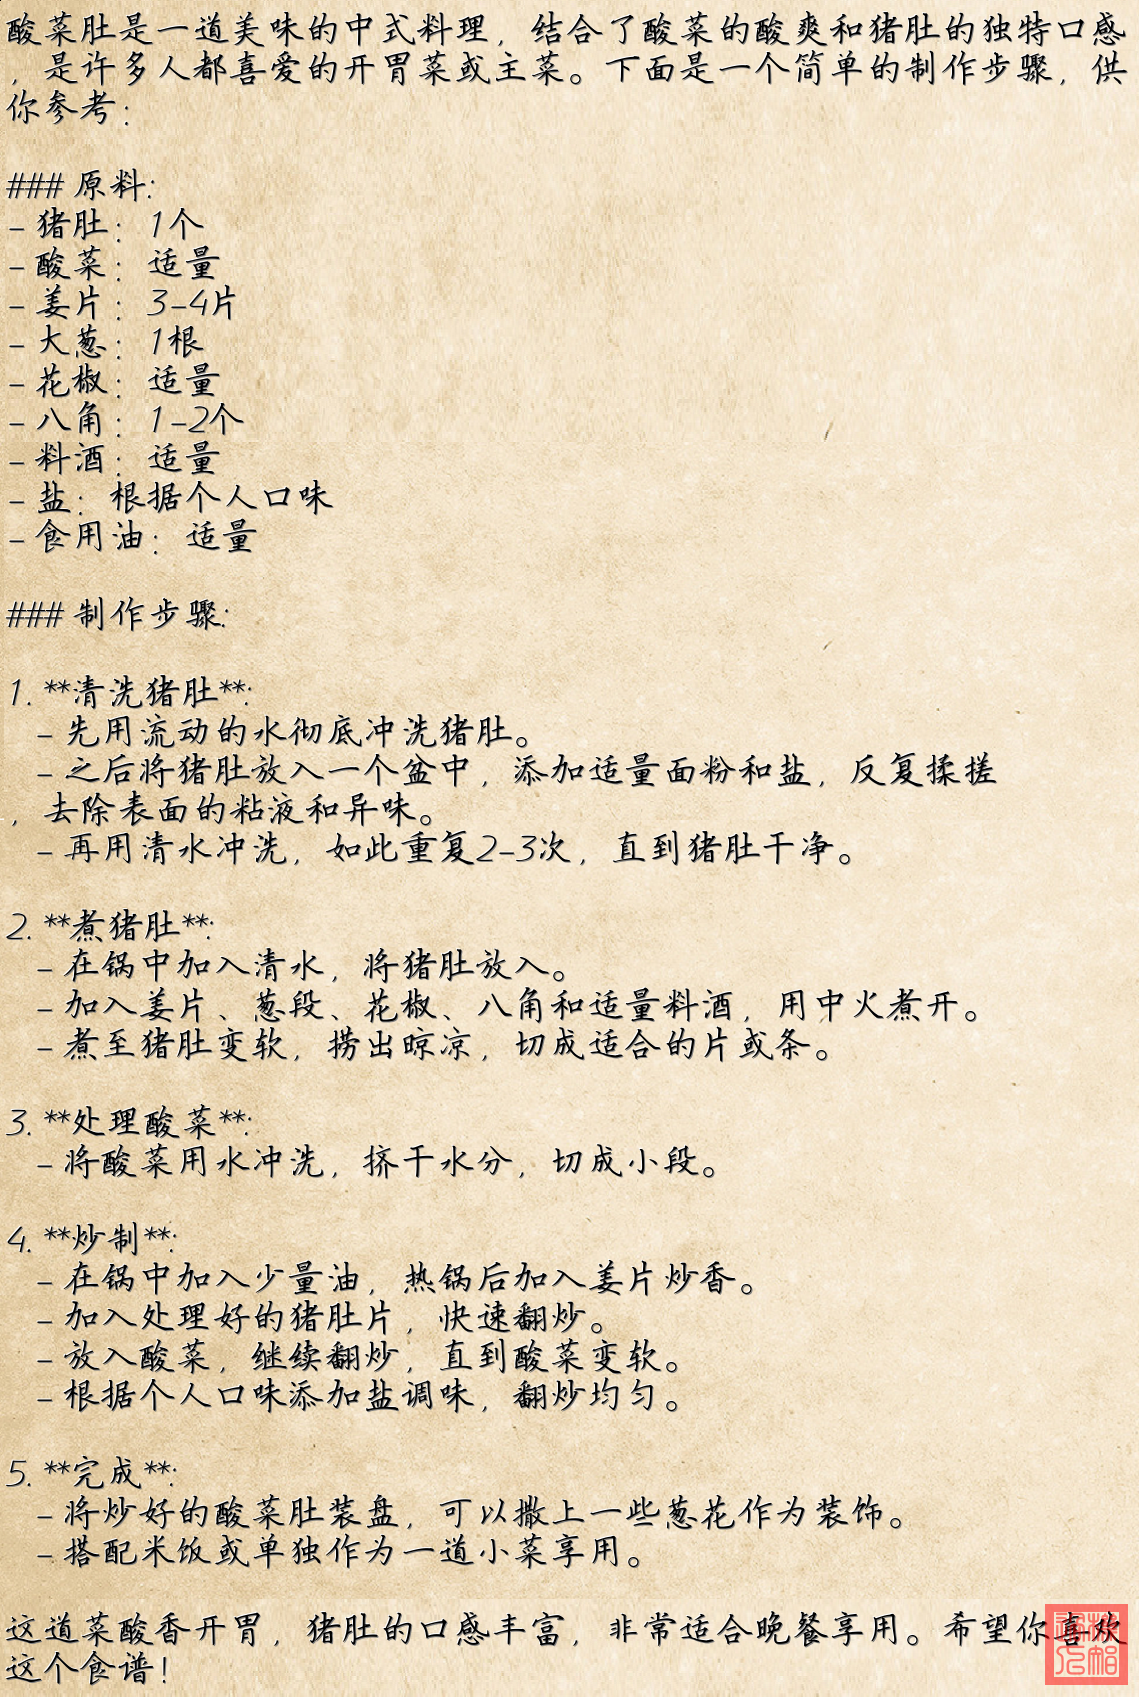 酸菜肚是一道美味的中式料理，结合了酸菜的酸爽和猪肚的独特口感
，是许多人都喜爱的开胃菜或主菜。下面是一个简单的制作步骤，供
你参考：
### 原料:
- 猪肚：1个
- 酸菜：适量
- 姜片：3-4片
- 大葱：1根
- 花椒：适量
- 八角：1-2个
- 料酒：适量
- 盐：根据个人口味
- 食用油：适量
### 制作步骤:
1. **清洗猪肚**:
- 先用流动的水彻底冲洗猪肚。
- 之后将猪肚放入一个盆中，添加适量面粉和盐，反复揉搓
，去除表面的粘液和异味。
- 再用清水冲洗，如此重复2-3次，直到猪肚干净。
2. **煮猪肚**:
- 在锅中加入清水，将猪肚放入。
- 加入姜片、葱段、花椒、八角和适量料酒，用中火煮开。
- 煮至猪肚变软，捞出晾凉，切成适合的片或条。
3. **处理酸菜**:
- 将酸菜用水冲洗，挤干水分，切成小段。
4. **炒制**:
- 在锅中加入少量油，热锅后加入姜片炒香。
- 加入处理好的猪肚片，快速翻炒。
- 放入酸菜，继续翻炒，直到酸菜变软。
- 根据个人口味添加盐调味，翻炒均匀。
5. **完成**:
- 将炒好的酸菜肚装盘，可以撒上一些葱花作为装饰。
- 搭配米饭或单独作为一道小菜享用。
这道菜酸香开胃，猪肚的口感丰富，非常适合晚餐享用。希望你喜欢
这个食谱！